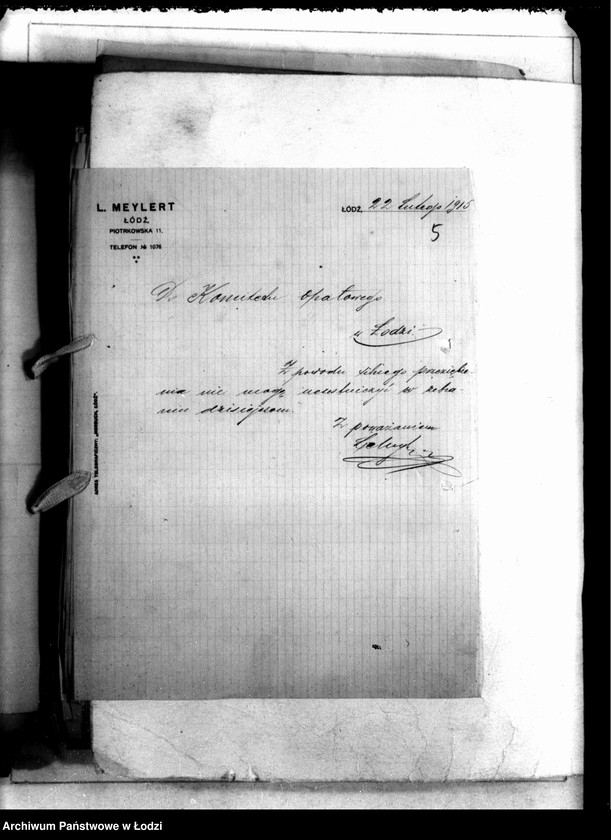 L. MEYLERT
ŁÓDŹ,
PIOTRKOWSKA 11.
TELEFON № 1076
ŁÓDŹ, 22 Lutego 1915
5
Do Komitetu Opałowego
w Łodzi.
Z powodu silnego przezięble-
nia nie mogę uczestniczyć w zebra-
niu dzisiejszem.
Z poważaniem
ADRES TELEGRAFICZNY:
Archiwum Państwowe w Łodzi